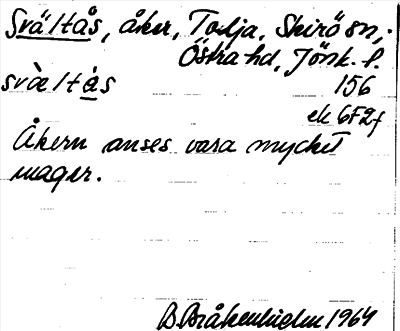 Svältås, åker, Todja, Skirö sn,
Östra hd, Jönk. l.
svàltås 156
ek 6F2f
Åkern anses vara mycket
mager.
B. Bråkenhielm 1964